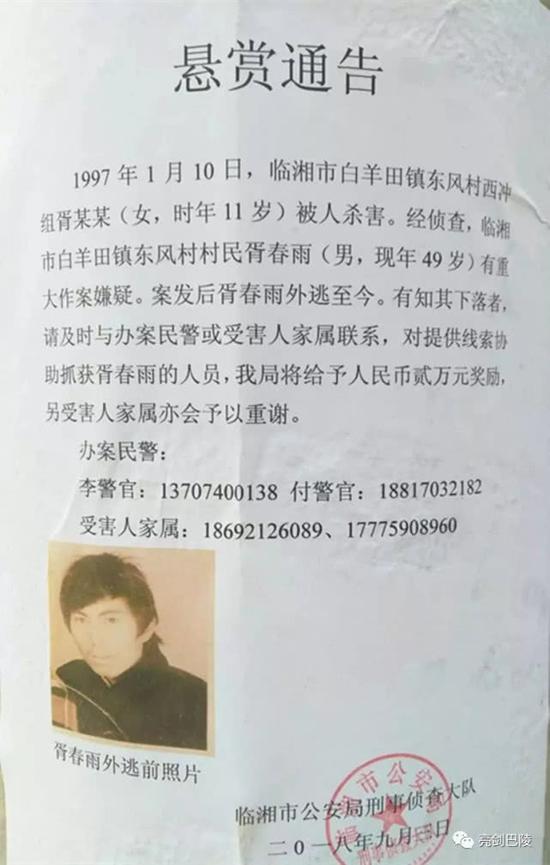 悬赏通告
1997年1月10日，临湘市白羊田镇东风村西冲
组胥某某（女，时年11岁）被人杀害。经侦查，临湘
市白羊田镇东风村村民胥春雨（男，现年49岁）有重
大作案嫌疑。案发后胥春雨外逃至今。有知其下落者，
请及时与办案民警或受害人家属联系，对提供线索协
助抓获胥春雨的人员，我局将给予人民币贰万元奖励，
另受害人家属亦会予以重谢。
办案民警：
李警官：13707400138 付警官：18817032182
受害人家属：18692126089、17775908960
胥春雨外逃前照片
临湘市公安局刑事侦查大队
二〇一八年九月 日
市公安局
刑事侦查大队
亮剑巴陵